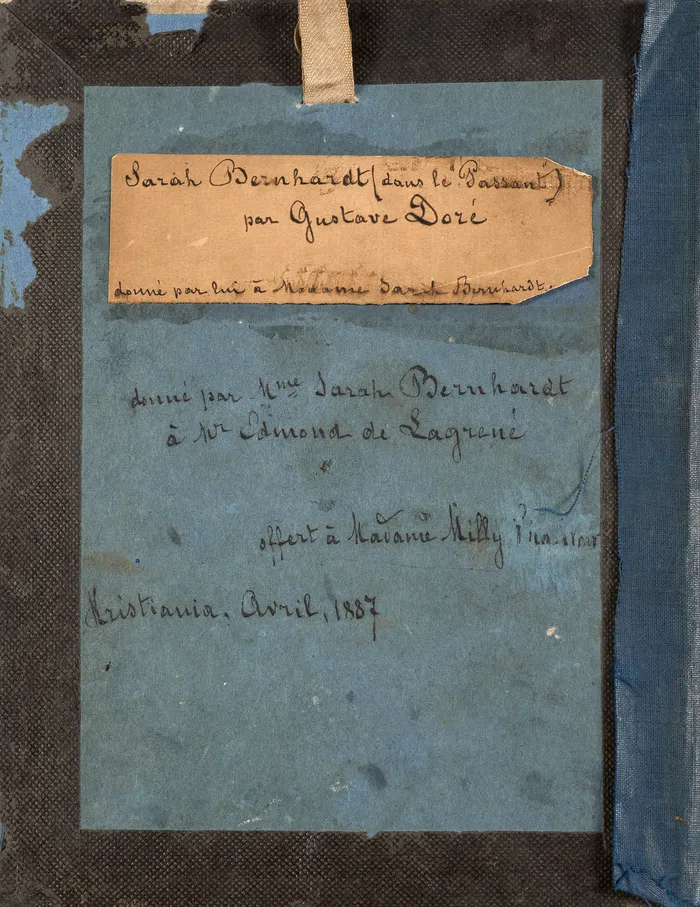 Sarah Bernhardt (dans le "Passant")
par Gustave Doré
donné par lui à Madame Sarah Bernhardt.
donné par Mme Sarah Bernhardt
à Mr Edmond de Lagrené
offert à Madame Milly
Kristiania. Avril, 1887